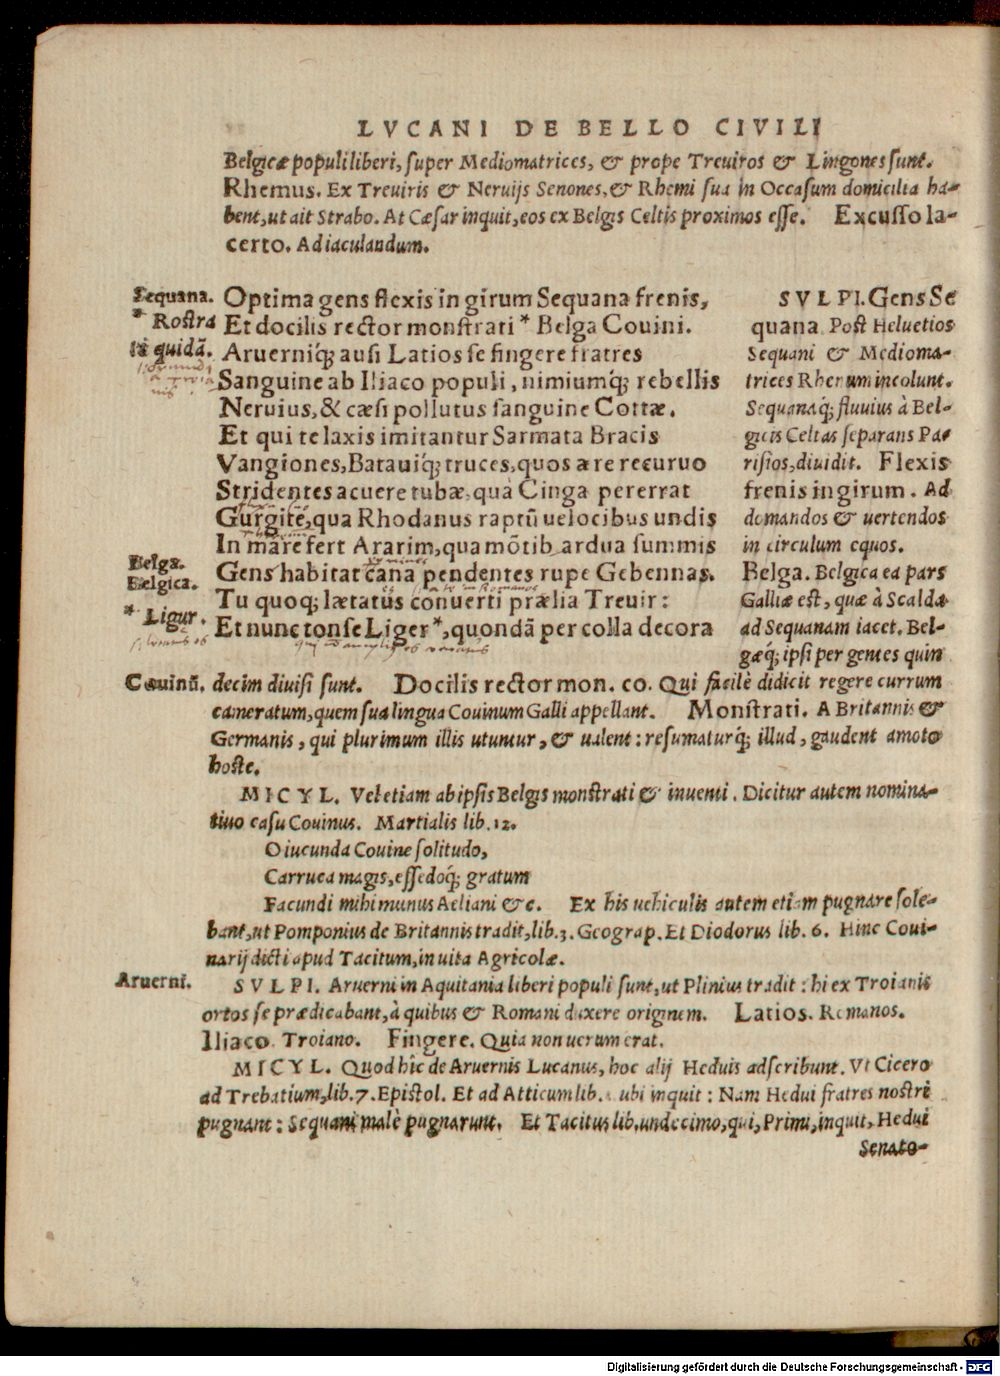 LVCANI DE BELLO CIVILI
Belgicæ populi liberi, super Mediomatrices, & prope Treuiros & Lingones sunt.
Rhemus. Ex Treuiris & Neruijs Senones, & Rhemi sua in Occasum domicilia ha-
bent, ut ait Strabo. At Cæsar inquit, eos ex Belgis Celtis proximos esse. Excusso la-
certo. Ad iaculandum.
Sequana.
* Rostra
quidā.
Optima gens flexis in girum Sequana frenis,
Et docilis rector monstrati * Belga Couini.
Aruerniq́; ausi Latios se fingere fratres
Sanguine ab Iliaco populi, nimiumq́; rebellis
Neruius, & cæsi pollutus sanguine Cottæ.
Et qui te laxis imitantur Sarmata Bracis
Vangiones, Batauiq́; truces, quos ære recuruo
Stridentes acuere tubæ, quà Cinga pererrat
Gurgite, qua Rhodanus raptū uelocibus undis
In mare fert Ararim, qua mōtib. ardua summis
Gens habitat cana pendentes rupe Gebennas.
Tu quoq; lætatus conuerti prælia Treuir:
Et nunc tonse Liger *, quondā per colla decora
Belga.
Belgica.
* Ligur.
SVLPI. Gens Se
quana. Post Heluetios
Sequani & Medioma-
trices Rhenum incolunt.
Sequanaq́; fluuius à Bel-
gicis Celtas separans Pa-
risios, diuidit. Flexis
frenis in girum. Ad
domandos & uertendos
in circulum equos.
Belga. Belgica ea pars
Galliæ est, quæ à Scalda
ad Sequanam iacet. Bel-
gæq́; ipsi per gentes quin
Couinū. decim diuisi sunt. Docilis rector mon. co. Qui facilè didicit regere currum
cameratum, quem sua lingua Couinum Galli appellant. Monstrati. A Britannis &
Germanis, qui plurimum illis utuntur, & ualent: resumaturq́; illud, gaudent amoto
hoste.
MICYL. Vel etiam ab ipsis Belgis monstrati & inuenti. Dicitur autem nomina-
tiuo casu Couinus. Martialis lib. 12.
O iucunda Couine solitudo,
Carruca magis, essedoq́; gratum
Facundi mihi munus Aeliani &c. Ex his uehiculis autem etiam pugnare sole-
bant, ut Pomponius de Britannis tradit, lib. 3. Geograp. Et Diodorus lib. 6. Hinc Coui-
narij dicti apud Tacitum, in uita Agricolæ.
Aruerni. SVLPI. Aruerni in Aquitania liberi populi sunt, ut Plinius tradit: hi ex Troianis
ortos se prædicabant, à quibus & Romani duxere originem. Latios. Romanos.
Iliaco. Troiano. Fingere. Quia non uerum erat.
MICYL. Quod hîc de Aruernis Lucanus, hoc alij Heduis adscribunt. Vt Cicero
ad Trebatium, lib. 7. Epistol. Et ad Atticum lib. ubi inquit: Nam Hedui fratres nostri
pugnant: Sequani malè pugnarunt. Et Tacitus lib. undecimo, qui, Primi, inquit, Hedui
Senato-
Digitalisierung gefördert durch die Deutsche Forschungsgemeinschaft - DFG